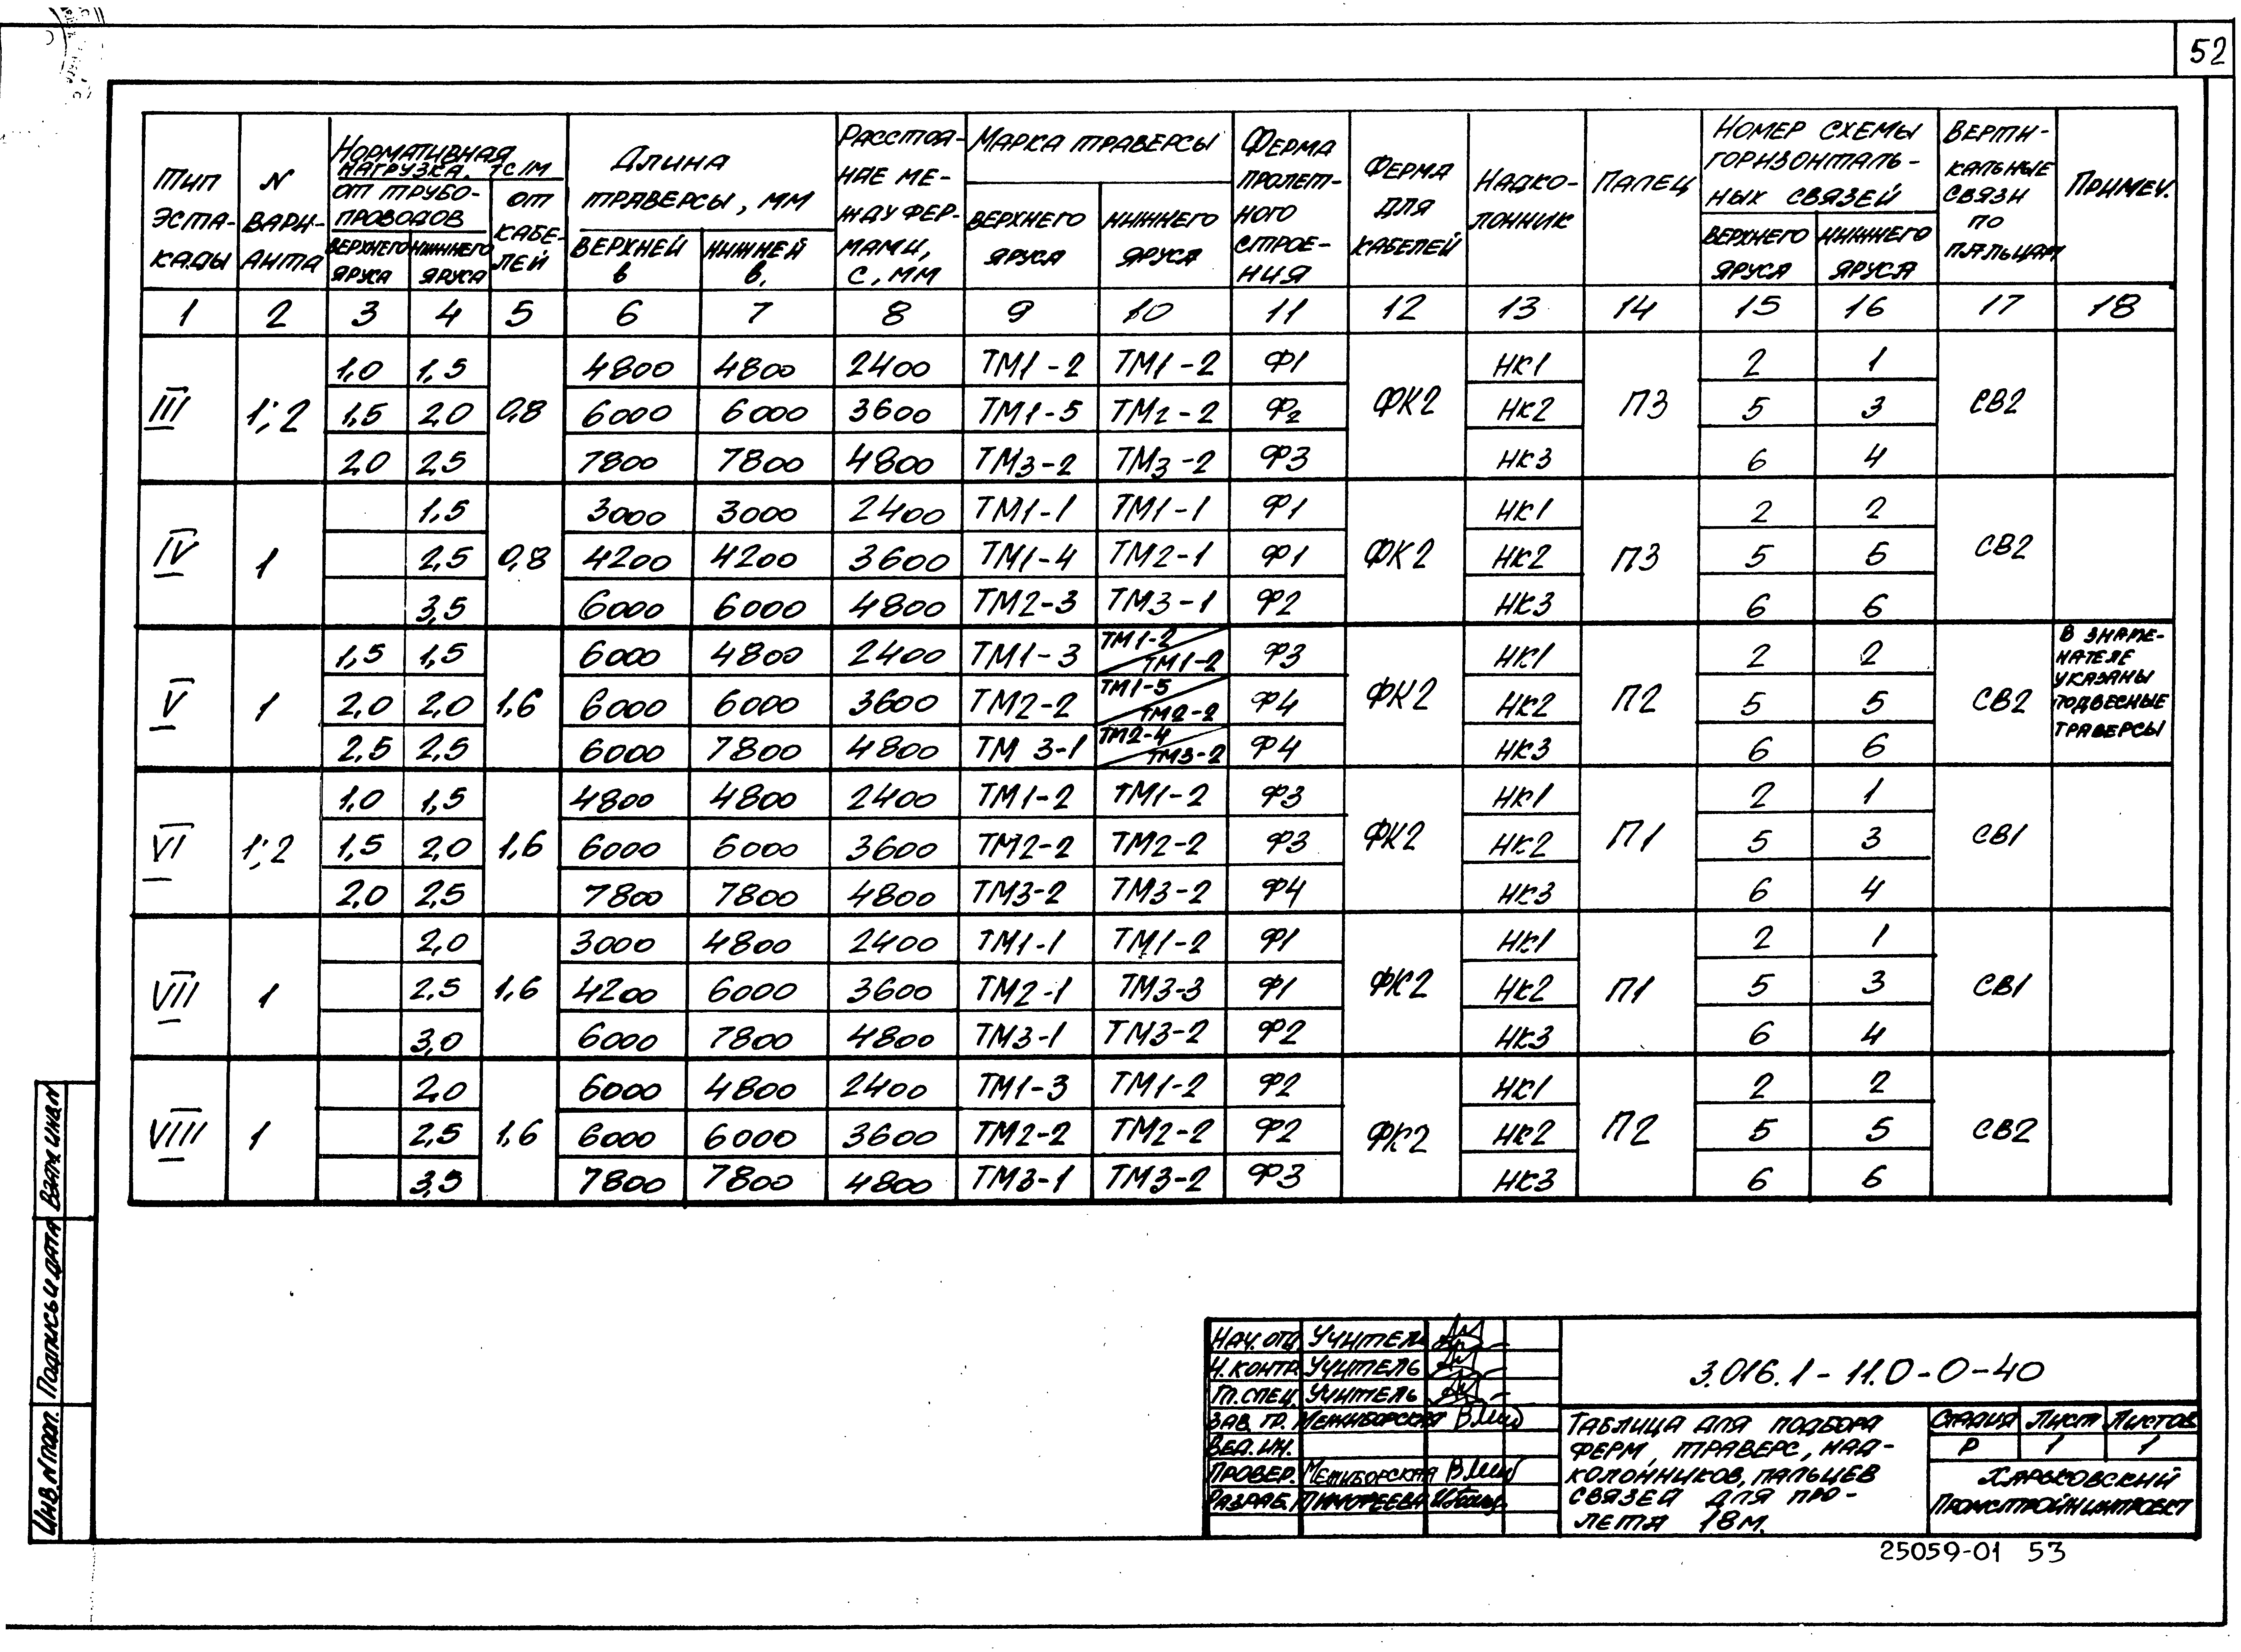 52
ТИП ЭСТА-КАДЫ
N ВАРИ-АНТА
НОРМАТИВНАЯ НАГРУЗКА, ТС/М
ОТ ТРУБО-ПРОВОДОВ
ВЕРХНЕГО ЯРУСА
НИЖНЕГО ЯРУСА
ОТ КАБЕ-ЛЕЙ
ДЛИНА ТРАВЕРСЫ, ММ
ВЕРХНЕЙ В
НИЖНЕЙ В,
РАССТОЯ-НИЕ МЕ-ЖДУ ФЕР-МАМИ, С, ММ
МАРКА ТРАВЕРСЫ
ВЕРХНЕГО ЯРУСА
НИЖНЕГО ЯРУСА
ФЕРМА ПРОЛЕТ-НОГО СТРОЕ-НИЯ
ФЕРМА ДЛЯ КАБЕЛЕЙ
НАДКО-ЛОННИК
ПАЛЕЦ
НОМЕР СХЕМЫ ГОРИЗОНТАЛЬ-НЫХ СВЯЗЕЙ
ВЕРХНЕГО ЯРУСА
НИЖНЕГО ЯРУСА
ВЕРТИ-КАЛЬНЫЕ СВЯЗИ ПО ПАЛЬЦАМ
ПРИМЕЧ.
1 2 3 4 5 6 7 8 9 10 11 12 13 14 15 16 17 18
1,0 1,5 4800 4800 2400 ТМ1-2 ТМ1-2 Ф1 НК1 2 1
III 1;2 1,5 2,0 0,8 6000 6000 3600 ТМ1-5 ТМ2-2 Ф2 ФК2 НК2 П3 5 3 СВ2
2,0 2,5 7800 7800 4800 ТМ3-2 ТМ3-2 Ф3 НК3 6 4
1,5 3000 3000 2400 ТМ1-1 ТМ1-1 Ф1 НК1 2 2
IV 1 2,5 0,8 4200 4200 3600 ТМ1-4 ТМ2-1 Ф1 ФК2 НК2 П3 5 5 СВ2
3,5 6000 6000 4800 ТМ2-3 ТМ3-1 Ф2 НК3 6 6
1,5 1,5 6000 4800 2400 ТМ1-3 ТМ1-2/ТМ1-2 Ф3 НК1 2 2
V 1 2,0 2,0 1,6 6000 6000 3600 ТМ2-2 ТМ1-5/ТМ2-2 Ф4 ФК2 НК2 П2 5 5 СВ2
2,5 2,5 6000 7800 4800 ТМ 3-1 ТМ2-4/ТМ3-2 Ф4 НК3 6 6
В ЗНАМЕ-
НАТЕЛЕ
УКАЗАНЫ
ПОДВЕСНЫЕ
ТРАВЕРСЫ
1,0 1,5 4800 4800 2400 ТМ1-2 ТМ1-2 Ф3 НК1 2 1
VI 1;2 1,5 2,0 1,6 6000 6000 3600 ТМ2-2 ТМ2-2 Ф3 ФК2 НК2 П1 5 3 СВ1
2,0 2,5 7800 7800 4800 ТМ3-2 ТМ3-2 Ф4 НК3 6 4
2,0 3000 4800 2400 ТМ1-1 ТМ1-2 Ф1 НК1 2 1
VII 1 2,5 1,6 4200 6000 3600 ТМ2-1 ТМ3-3 Ф1 ФК2 НК2 П1 5 3 СВ1
3,0 6000 7800 4800 ТМ3-1 ТМ3-2 Ф2 НК3 6 4
2,0 6000 4800 2400 ТМ1-3 ТМ1-2 Ф2 НК1 2 2
VIII 1 2,5 1,6 6000 6000 3600 ТМ2-2 ТМ2-2 Ф2 ФК2 НК2 П2 5 5 СВ2
3,5 7800 7800 4800 ТМ3-1 ТМ3-2 Ф3 НК3 6 6
ИНВ. N ПОДЛ. ПОДПИСЬ И ДАТА ВЗАМ. ИНВ. N
НАЧ. ОТД. УЧИТЕЛЬ
Н. КОНТР. УЧИТЕЛЬ
ГЛ. СПЕЦ. УЧИТЕЛЬ
ЗАВ. ГР. МЕЖИБОРСКАЯ
ВЕД. ИН.
ПРОВЕР. МЕЖИБОРСКАЯ
РАЗРАБ.
3.016.1-11.0-0-40
ТАБЛИЦА ДЛЯ ПОДБОРА
ФЕРМ, ТРАВЕРС, НАД-
КОЛОННИКОВ, ПАЛЬЦЕВ
СВЯЗЕЙ ДЛЯ ПРО-
ЛЕТА 18М.
СТАДИЯ ЛИСТ ЛИСТОВ
Р 1 1
ХАРЬКОВСКИЙ
ПРОМСТРОЙНИИПРОЕКТ
25059-01 53